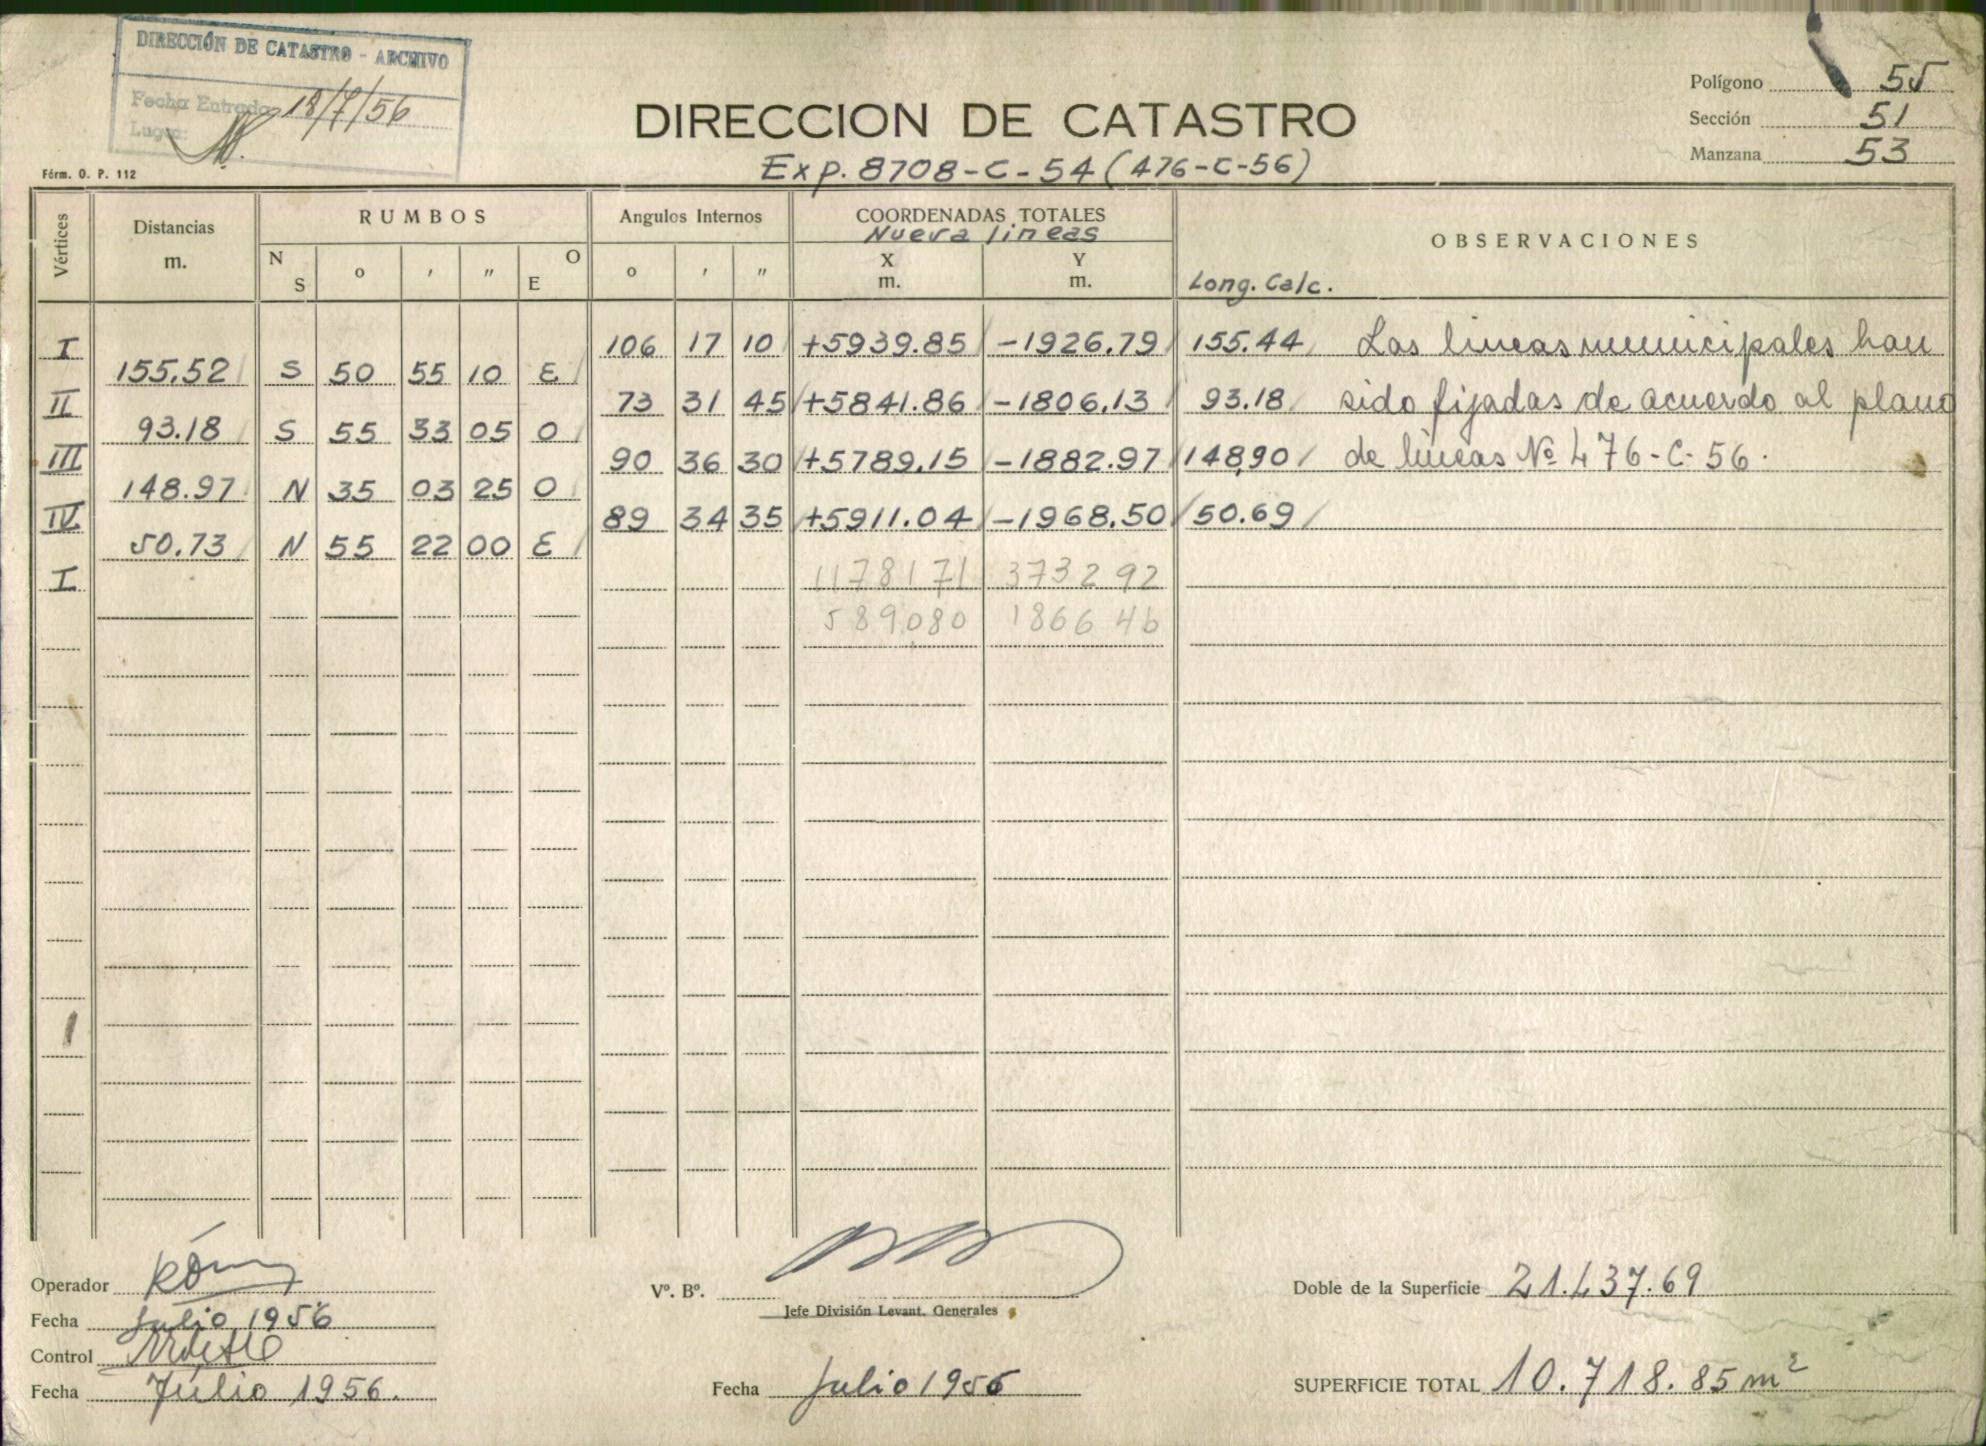 DIRECCIÓN DE CATASTRO - ARCHIVO
Fecha Entrada 18/7/56
Lugar:
Fórm. O. P. 112
DIRECCION DE CATASTRO
Exp. 8708-C-54 (476-C-56)
Polígono 55
Sección 51
Manzana 53
Vértices
Distancias
m.
RUMBOS
N S ° ′ ″ O E
Angulos Internos
° ′ ″
COORDENADAS TOTALES
Nueva lineas
X Y
m. m.
OBSERVACIONES
Long. Calc.
I 106 17 10 +5939.85 -1926.79 155.44 Las lineas municipales han
155.52 S 50 55 10 E
II 73 31 45 +5841.86 -1806.13 93.18 sido fijadas de acuerdo al plano
93.18 S 55 33 05 O
III 90 36 30 +5789.15 -1882.97 148.90 de lineas Nº 476-C-56.
148.97 N 35 03 25 O
IV 89 34 35 +5911.04 -1968.50 50.69
50.73 N 55 22 00 E
I 1178171 373292
589080 186646
Operador
Fecha Julio 1956
Control
Fecha Julio 1956.
Vº. Bº.
Jefe División Levant. Generales
Fecha Julio 1956
Doble de la Superficie 21.437.69
SUPERFICIE TOTAL 10.718.85 m²